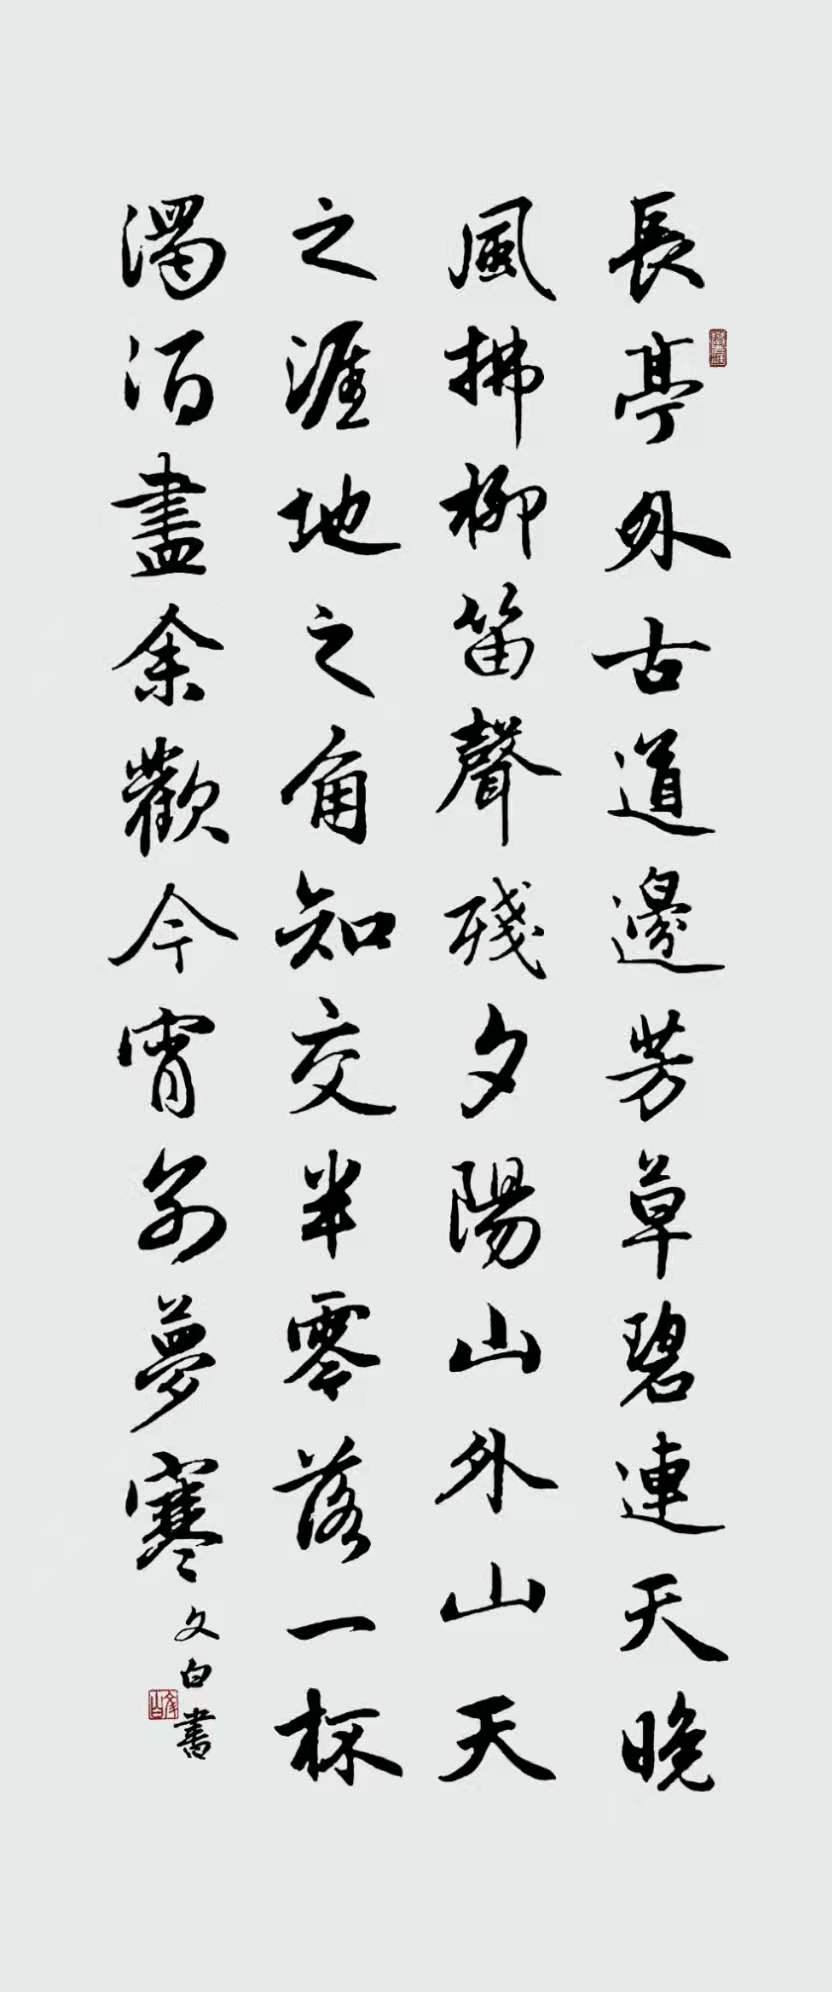 長亭外古道邊芳草碧連天晚
風拂柳笛聲殘夕陽山外山天
之涯地之角知交半零落一杯
濁酒盡余歡今宵別夢寒
文白書